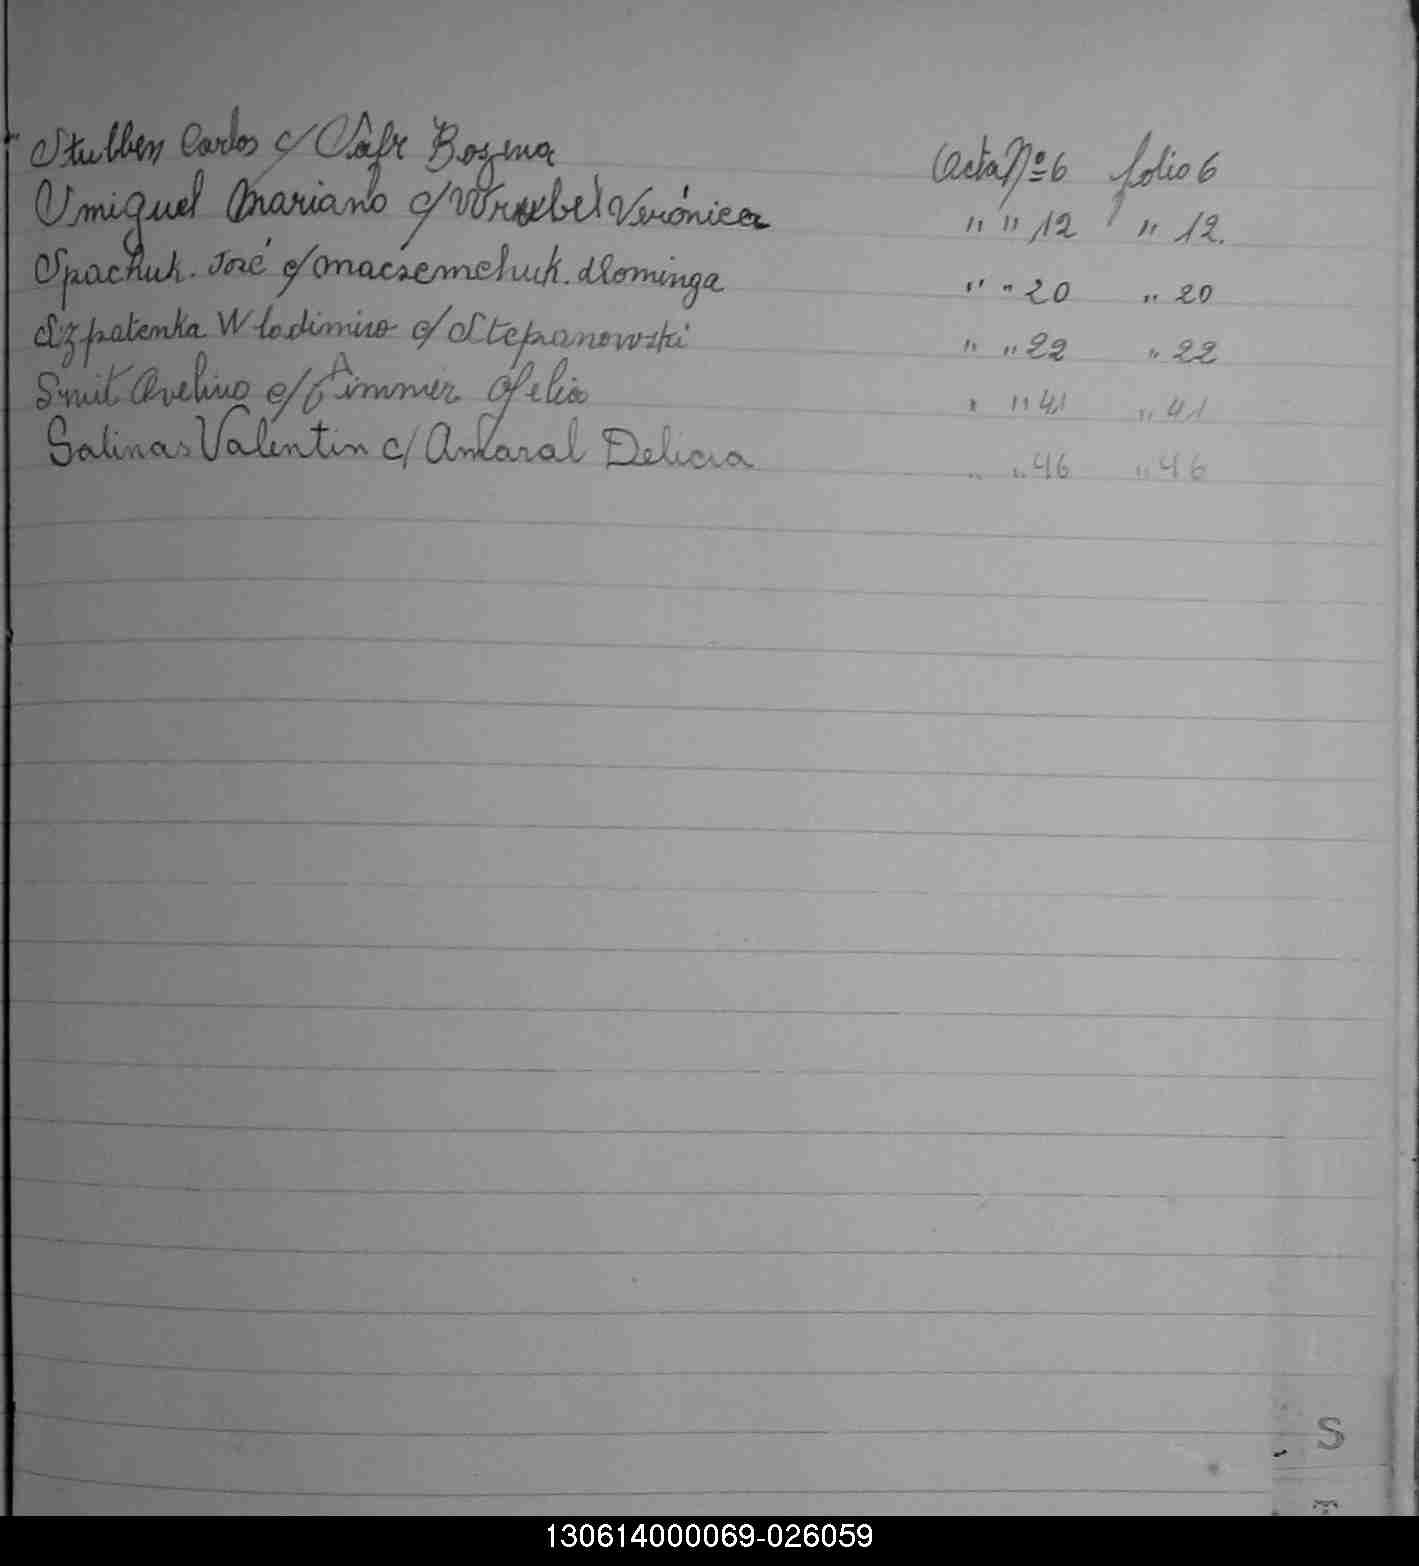 Stubben Carlos c/ Safr Bozena Acta Nº 6 folio 6
Smiguel Mariano c/ Wrubel Verónica " " 12 " 12.
Spachuk. José c/ Maczemchuk. Dominga " " 20 " 20
Szpatenka Wlodimiro c/ Stepanowski " " 22 " 22
Smit Avelino c/ Zimmer Ofelia " " 41 " 41
Salinas Valentin c/ Amaral Delicia " " 46 " 46
S
T
130614000069-026059